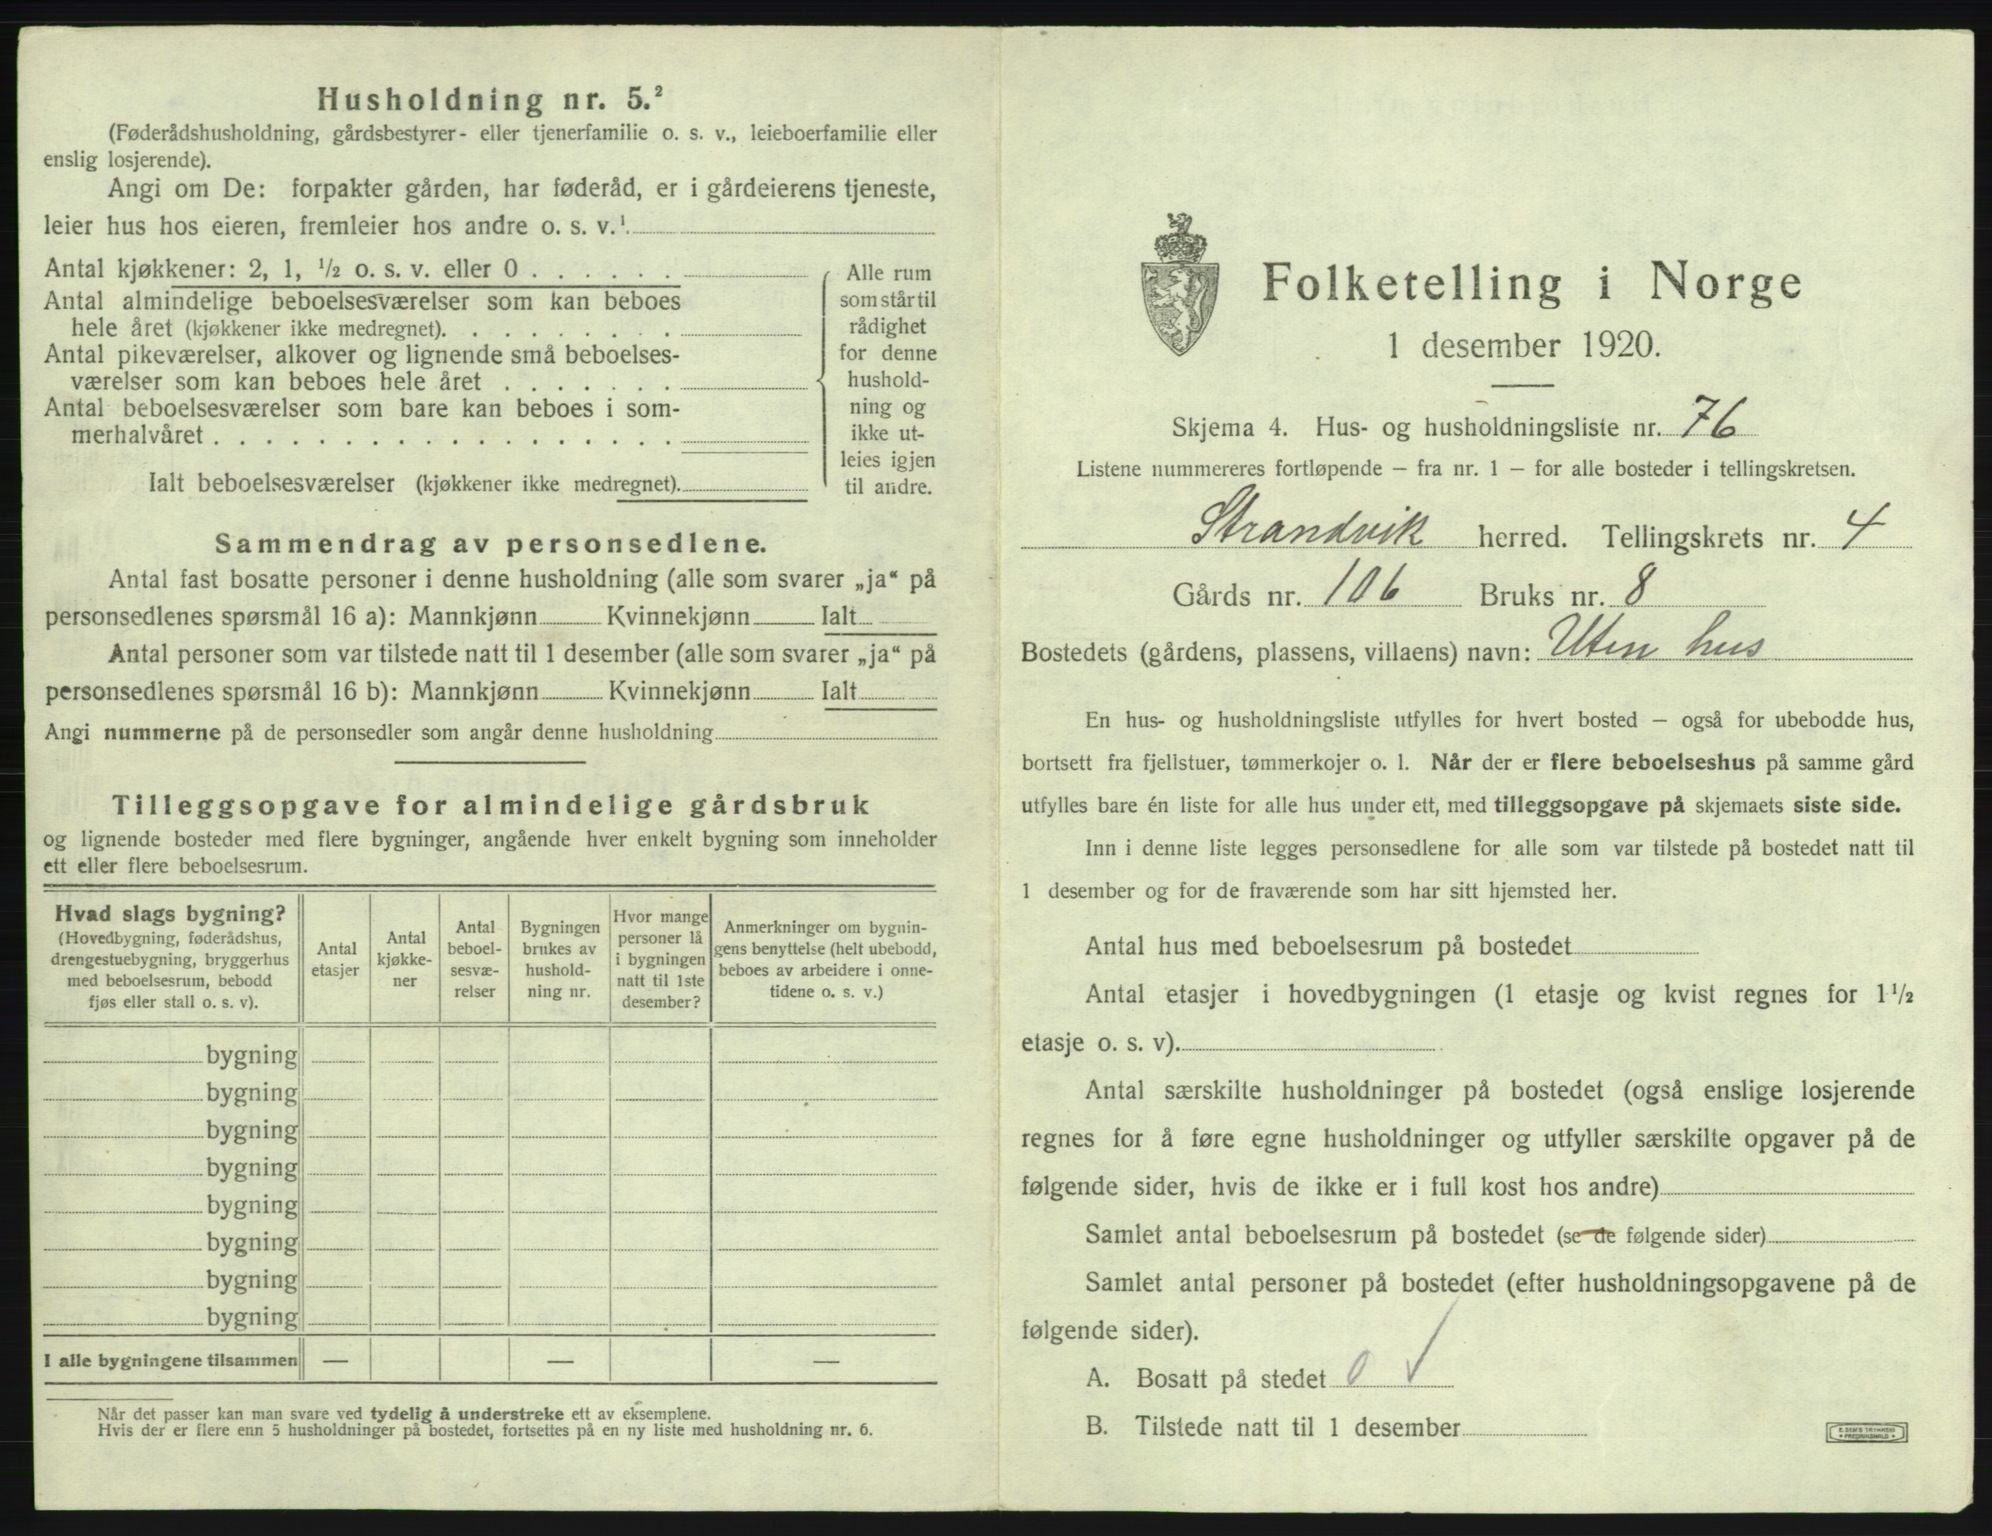 Husholdning nr. 5.²
(Føderådshusholdning, gårdsbestyrer- eller tjenerfamilie o. s. v., leieboerfamilie eller
enslig losjerende).
Angi om De: forpakter gården, har føderåd, er i gårdeierens tjeneste,
leier hus hos eieren, fremleier hos andre o. s. v.¹
Antal kjøkkener: 2, 1, ½ o. s. v. eller 0 . . . . . .
Antal almindelige beboelsesværelser som kan beboes
hele året (kjøkkener ikke medregnet). . . . . . . . .
Antal pikeværelser, alkover og lignende små beboelses-
værelser som kan beboes hele året . . . . . . .
Antal beboelsesværelser som bare kan beboes i som-
merhalvåret . . . . . . . . . . . . . . . . . .
Ialt beboelsesværelser (kjøkkener ikke medregnet).
Alle rum
som står til
rådighet
for denne
hushold-
ning og
ikke ut-
leies igjen
til andre.
Sammendrag av personsedlene.
Antal fast bosatte personer i denne husholdning (alle som svarer „ja“ på
personsedlenes spørsmål 16 a): Mannkjønn Kvinnekjønn Ialt
Antal personer som var tilstede natt til 1 desember (alle som svarer „ja“ på
personsedlenes spørsmål 16 b): Mannkjønn Kvinnekjønn Ialt
Angi nummerne på de personsedler som angår denne husholdning
Tilleggsopgave for almindelige gårdsbruk
og lignende bosteder med flere bygninger, angående hver enkelt bygning som inneholder
ett eller flere beboelsesrum.
Hvad slags bygning?
(Hovedbygning, føderådshus,
drengestuebygning, bryggerhus
med beboelsesrum, bebodd
fjøs eller stall o. s. v).
Antal
etasjer
Antal
kjøkke-
ner
Antal
beboel-
sesvæ-
relser
Bygningen
brukes av
hushold-
ning nr.
Hvor mange
personer lå
i bygningen
natt til 1ste
desember?
Anmerkninger om bygnin-
gens benyttelse (helt ubebodd,
beboes av arbeidere i onne-
tidene o. s. v.)
bygning
bygning
bygning
bygning
bygning
bygning
bygning
bygning
I alle bygningene tilsammen — — —
Når det passer kan man svare ved tydelig å understreke ett av eksemplene.
Hvis der er flere enn 5 husholdninger på bostedet, fortsettes på en ny liste med husholdning nr. 6.
Folketelling i Norge
1 desember 1920.
Skjema 4. Hus- og husholdningsliste nr. 76
Listene nummereres fortløpende – fra nr. 1 – for alle bosteder i tellingskretsen.
Strandvik herred. Tellingskrets nr. 4
Gårds nr. 106 Bruks nr. 8
Bostedets (gårdens, plassens, villaens) navn: Uten hus
En hus- og husholdningsliste utfylles for hvert bosted – også for ubebodde hus,
bortsett fra fjellstuer, tømmerkojer o. l. Når der er flere beboelseshus på samme gård
utfylles bare én liste for alle hus under ett, med tilleggsopgave på skjemaets siste side.
Inn i denne liste legges personsedlene for alle som var tilstede på bostedet natt til
1 desember og for de fraværende som har sitt hjemsted her.
Antal hus med beboelsesrum på bostedet
Antal etasjer i hovedbygningen (1 etasje og kvist regnes for 1½
etasje o. s. v).
Antal særskilte husholdninger på bostedet (også enslige losjerende
regnes for å føre egne husholdninger og utfyller særskilte opgaver på de
følgende sider, hvis de ikke er i full kost hos andre)
Samlet antal beboelsesrum på bostedet (se de følgende sider)
Samlet antal personer på bostedet (efter husholdningsopgavene på de
følgende sider).
A. Bosatt på stedet 0 ✓
B. Tilstede natt til 1 desember
E. SEM'S TRYKKERI
• FREDRIKSHALD •